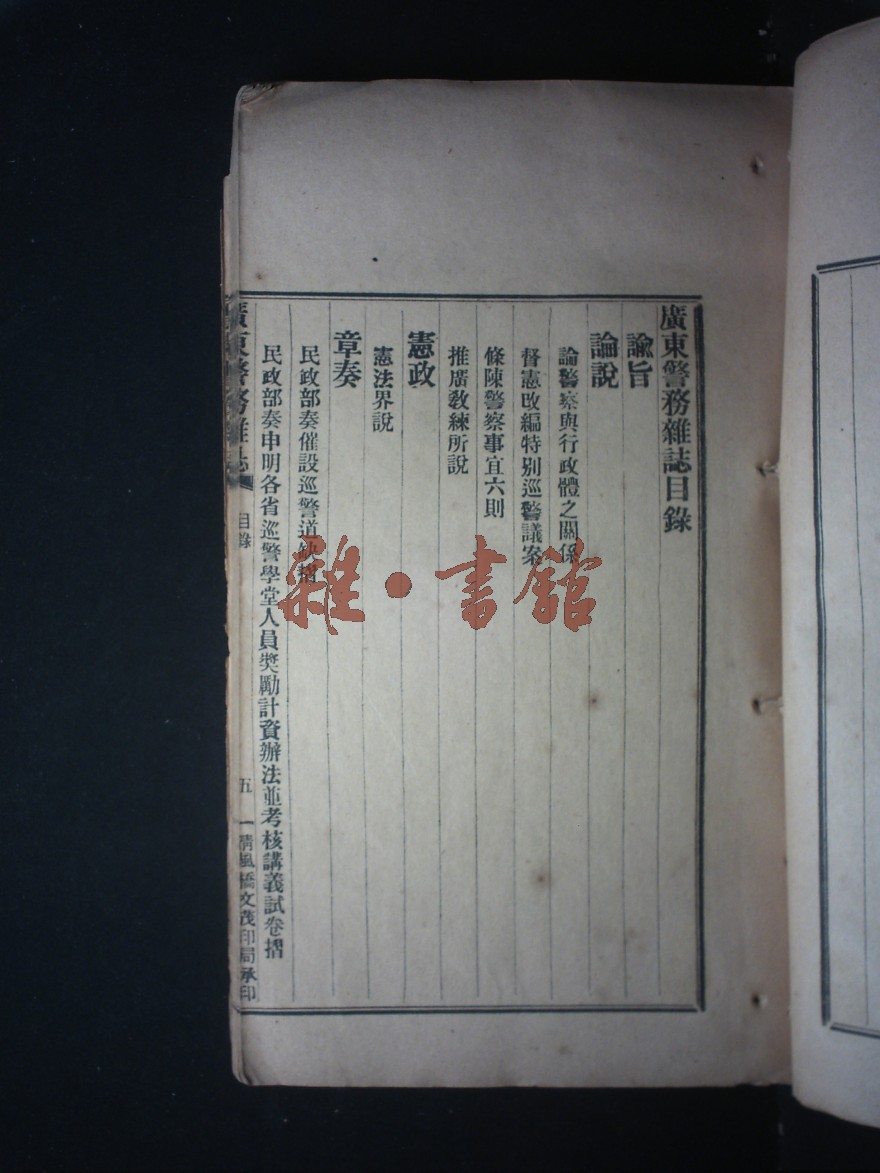 廣東警務雜誌目錄
諭旨
論說
論警察與行政體之關係
督憲改編特別巡警議案
條陳警察事宜六則
推廣敎練所說
憲政
憲法界說
章奏
民政部奏催設巡警道缺摺
民政部奏申明各省巡警學堂人員奬勵計資辦法並考核講義試卷摺
廣東警務雜誌
目錄
五
一
清風橋文茂印局承印
雜·書館